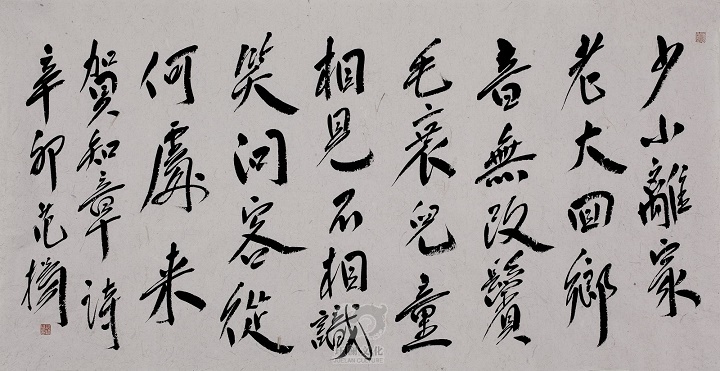 少小離家
老大回鄉
音無改鬢
毛衰兒童
相見不相識
笑問客從
何處来
賀知章詩
辛卯范